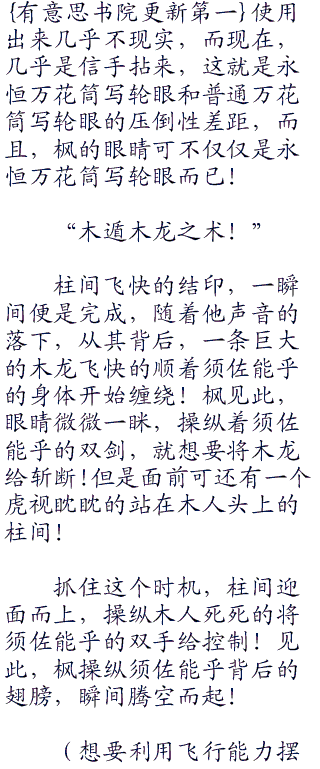 {有意思书院更新第一}使用
出来几乎不现实，而现在，
几乎是信手拈来，这就是永
恒万花筒写轮眼和普通万花
筒写轮眼的压倒性差距，而
且，枫的眼睛可不仅仅是永
恒万花筒写轮眼而已！
“木遁木龙之术！”
柱间飞快的结印，一瞬
间便是完成，随着他声音的
落下，从其背后，一条巨大
的木龙飞快的顺着须佐能乎
的身体开始缠绕！枫见此，
眼睛微微一眯，操纵着须佐
能乎的双剑，就想要将木龙
给斩断!但是面前可还有一个
虎视眈眈的站在木人头上的
柱间！
抓住这个时机，柱间迎
面而上，操纵木人死死的将
须佐能乎的双手给控制！见
此，枫操纵须佐能乎背后的
翅膀，瞬间腾空而起！
（想要利用飞行能力摆